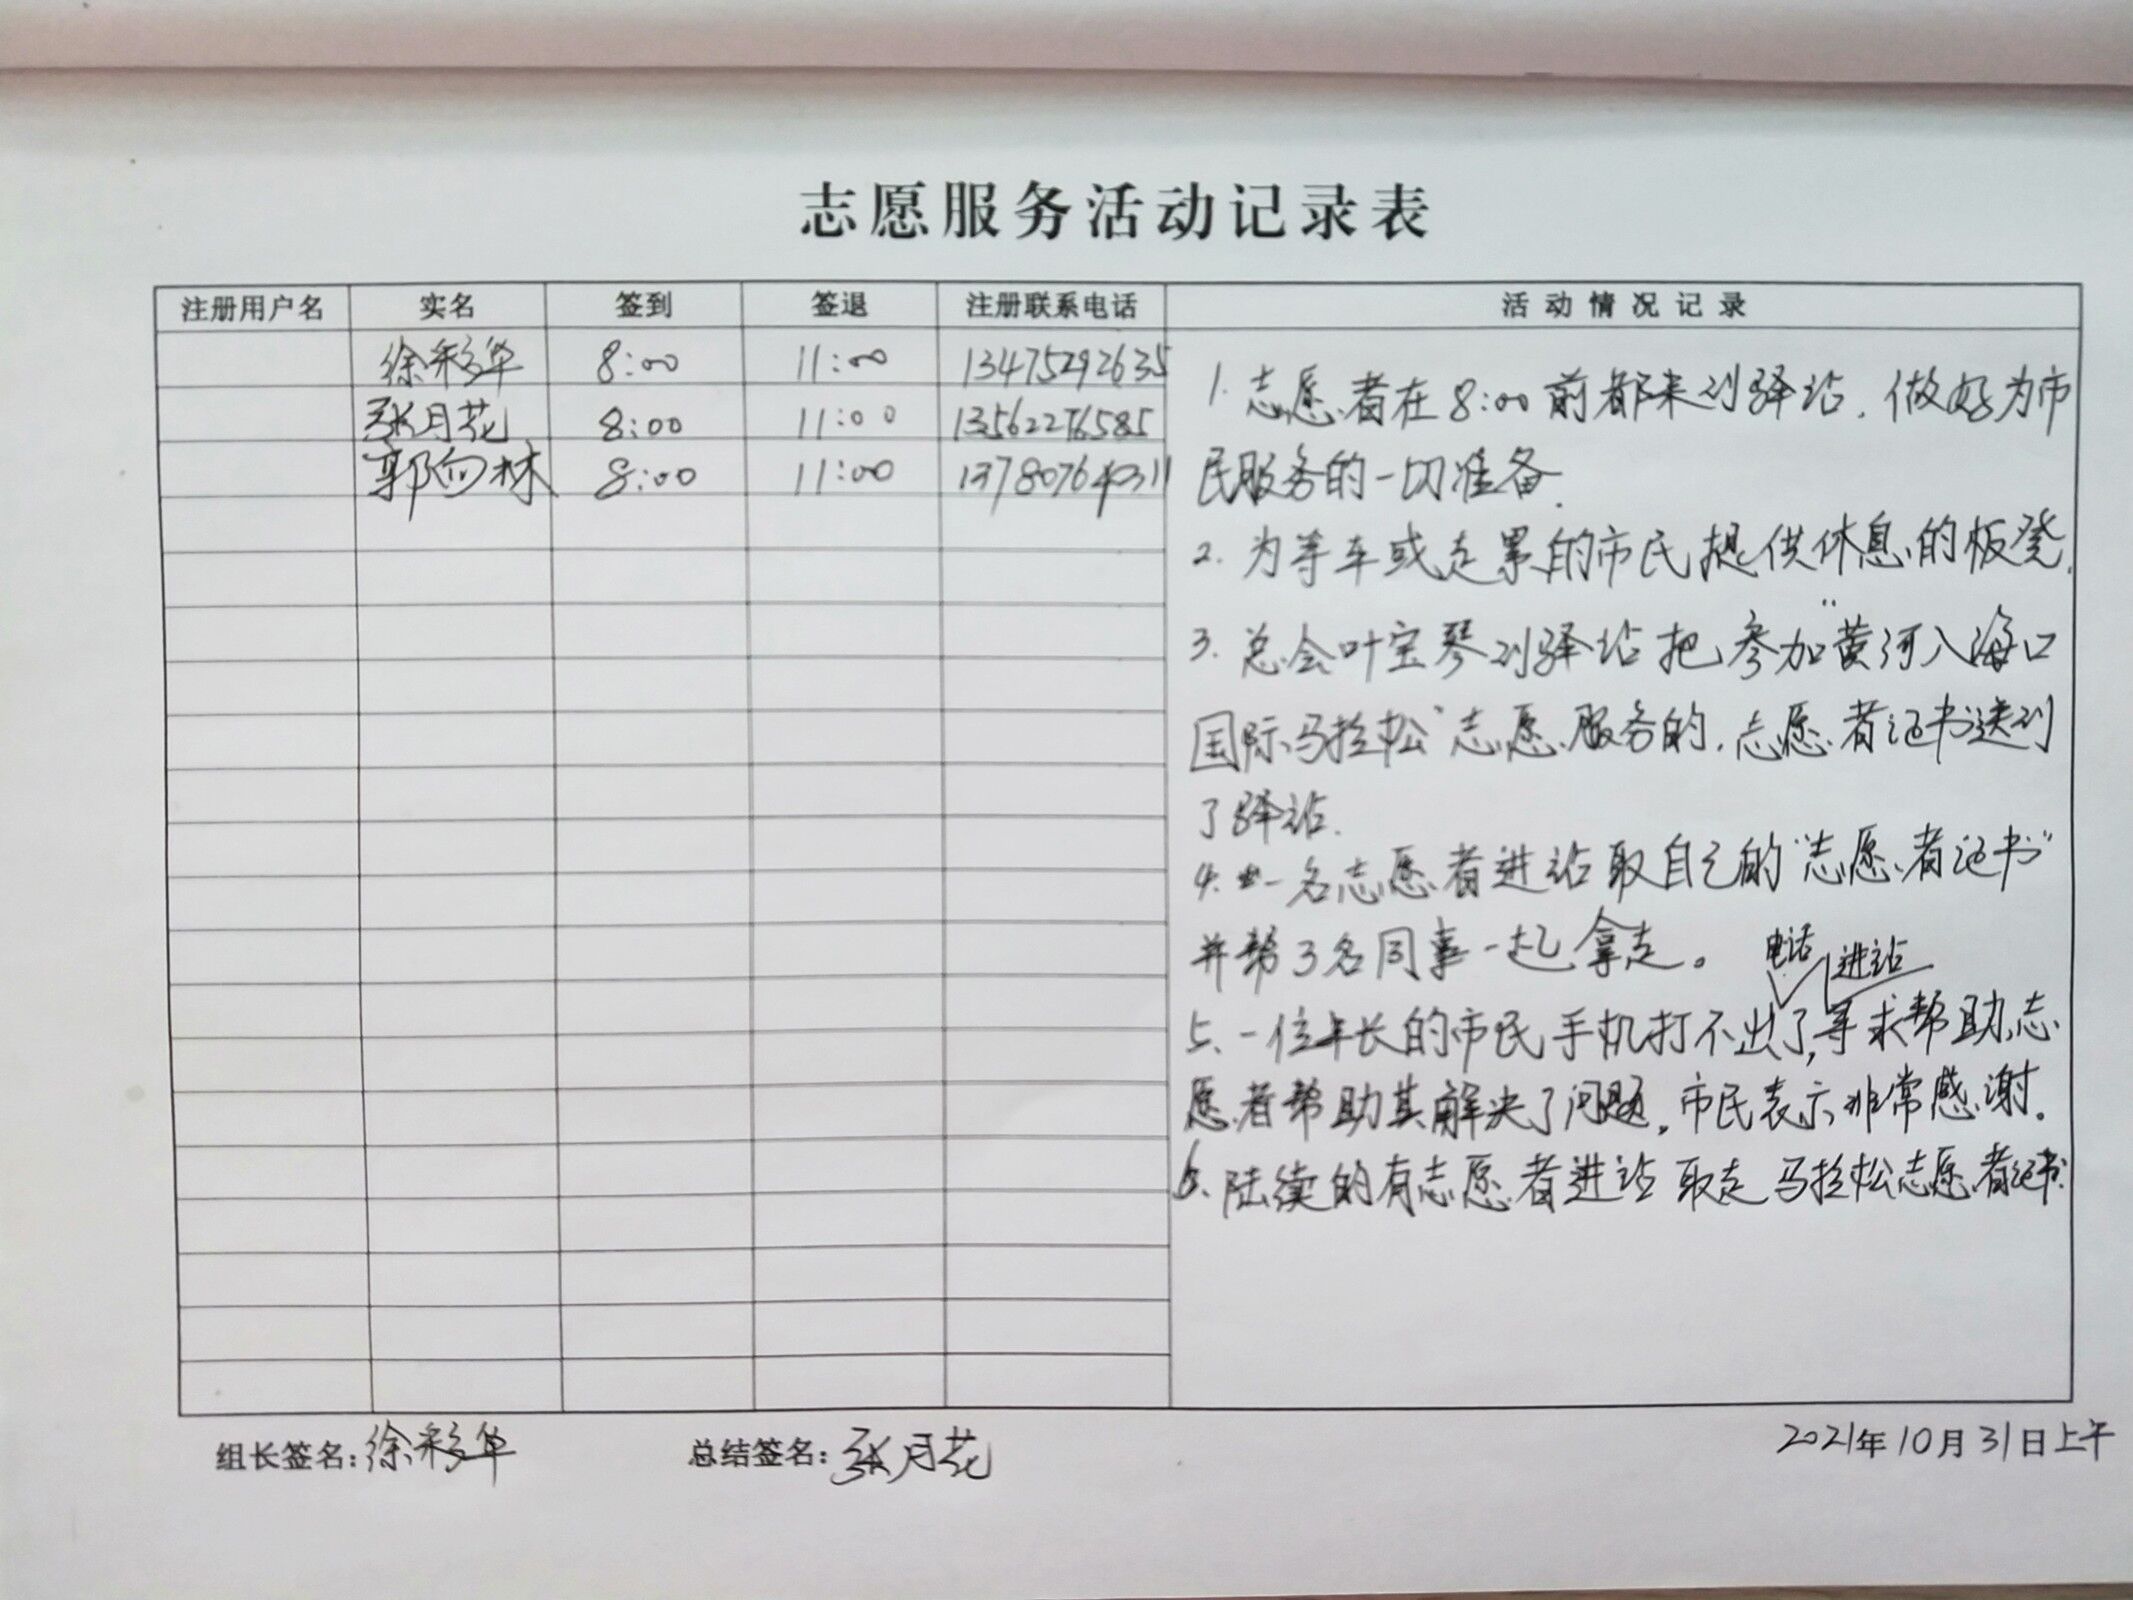 志愿服务活动记录表
注册用户名 实名 签到 签退 注册联系电话 活动情况记录
徐彩华 8:00 11:00 13475292635
张月花 8:00 11:00 13562276585
郭向林 8:00 11:00 13780764311
1. 志愿者在8:00前都来到驿站.做好为市
民服务的一切准备.
2. 为等车或走累的市民提供休息的板凳.
3. 总会叶宝琴到驿站把参加"黄河入海口
国际马拉松"志愿服务的.志愿者证书送到
了驿站.
4. 一名志愿者进站取自己的"志愿者证书"
并帮3名同事一起拿走。
电话 进站
5、一位年长的市民手机打不出了,寻求帮助,志
愿者帮助其解决了问题。市民表示非常感谢.
6、陆续的有志愿者进站取走马拉松志愿者证书.
组长签名:徐彩华 总结签名:张月花 2021年10月31日上午